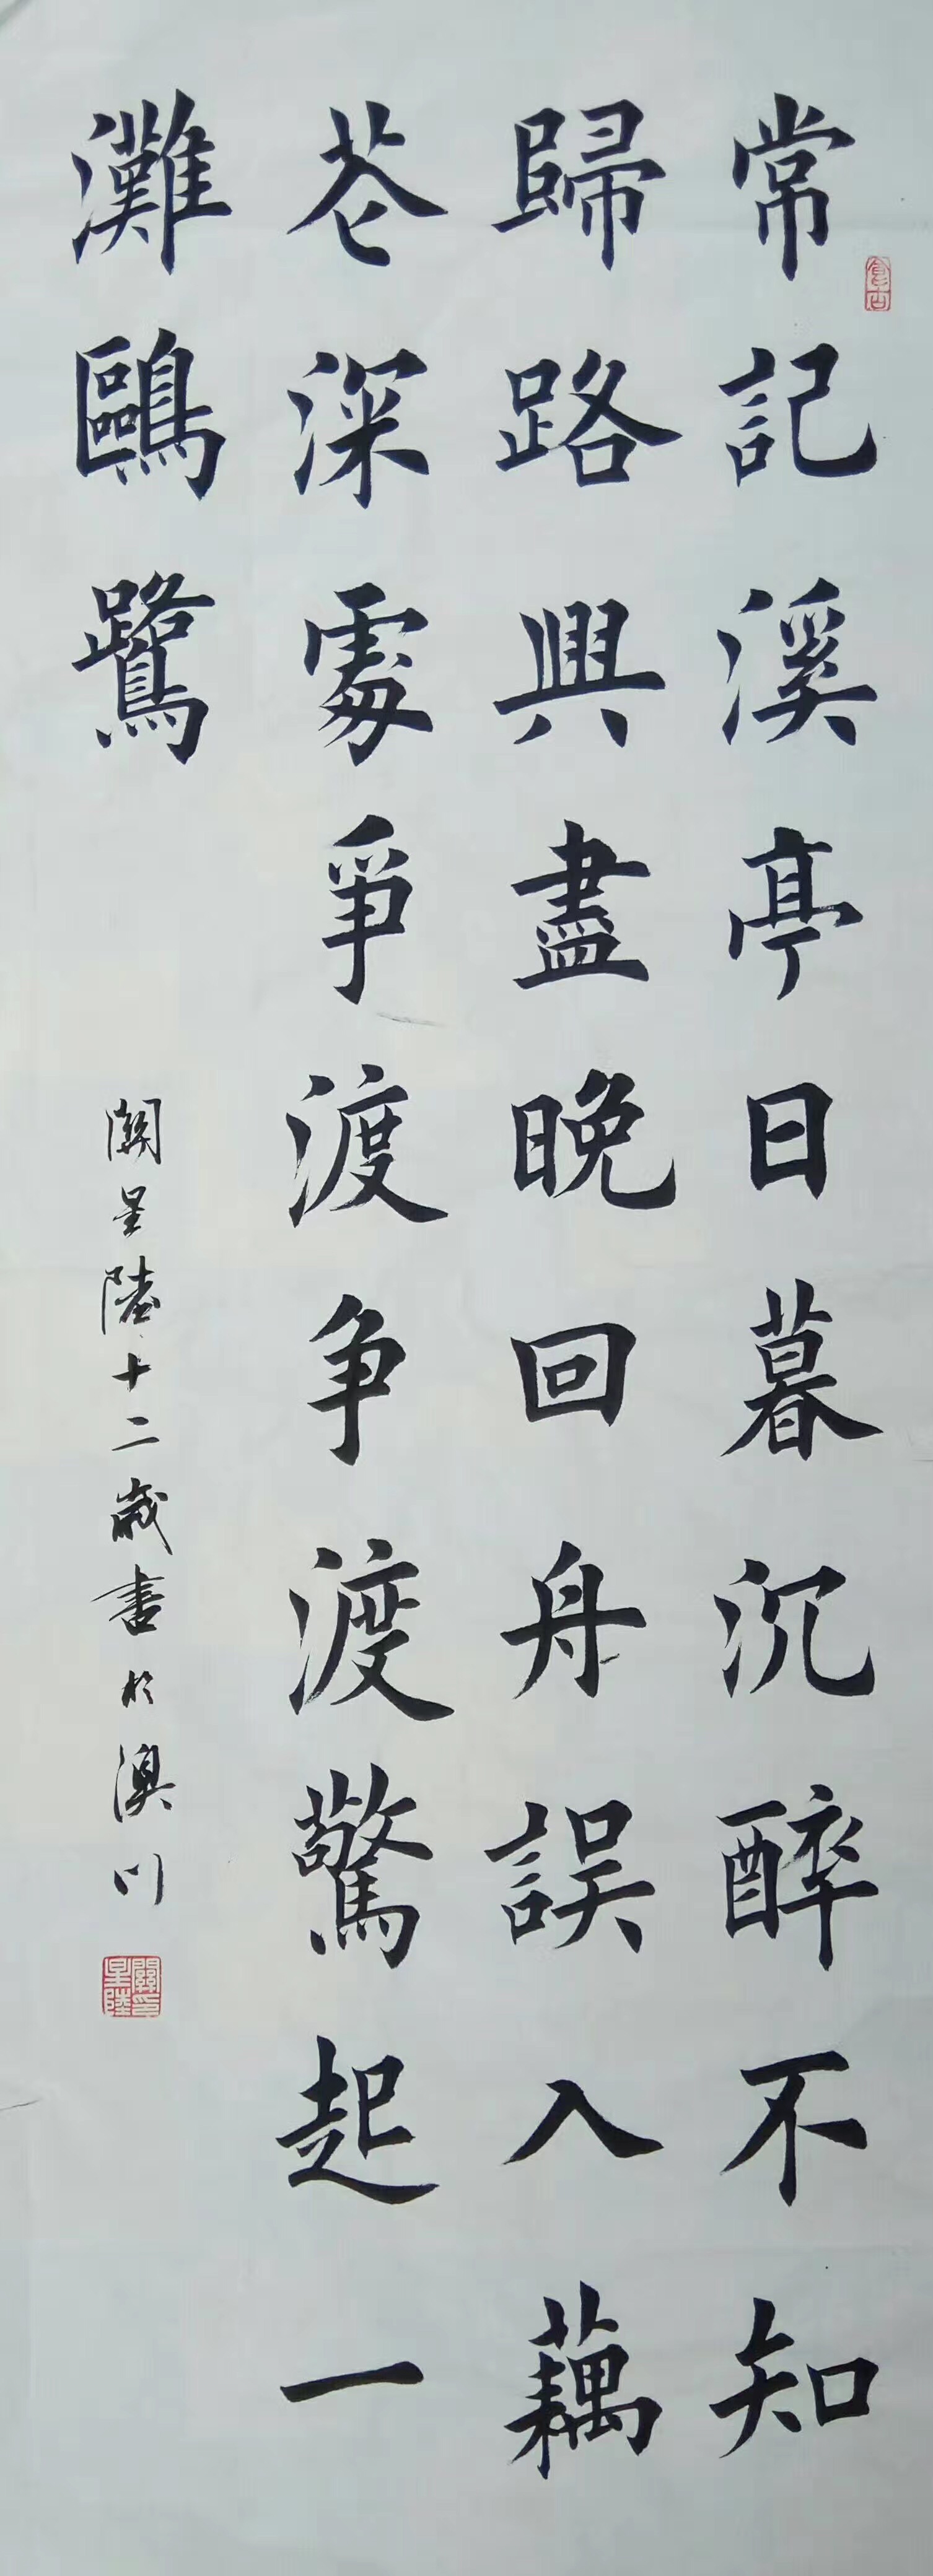 常記溪亭日暮沉醉不知
歸路興盡晚回舟誤入藕
花深處爭渡争渡驚起一
灘鷗鷺
關星陸十二歲書於澳门
關星陸印